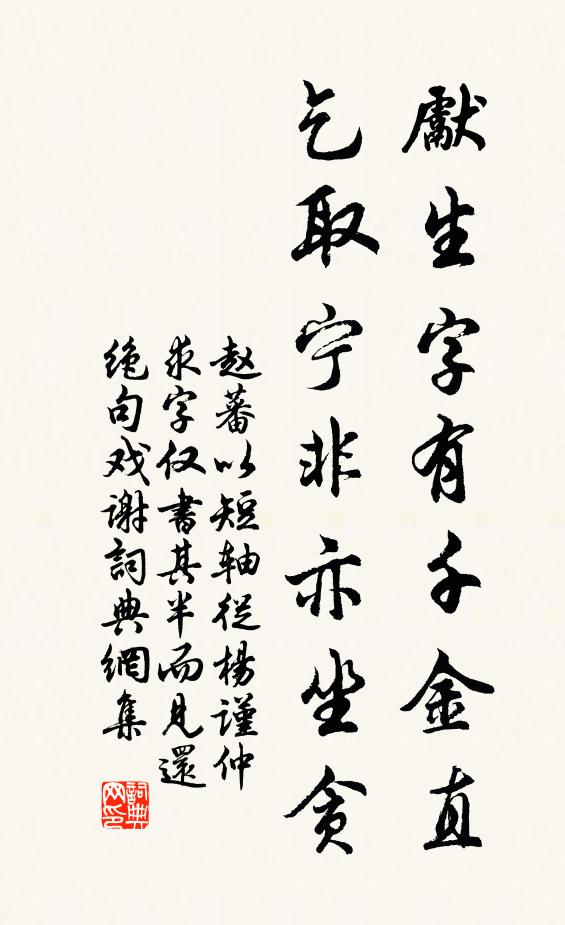 獻生字有千金直
乞取宁非亦坐贪
赵蕃以短轴從楊谨仲
求字仅書其半而見還
绝句戏谢詞典網集
詞典
网印